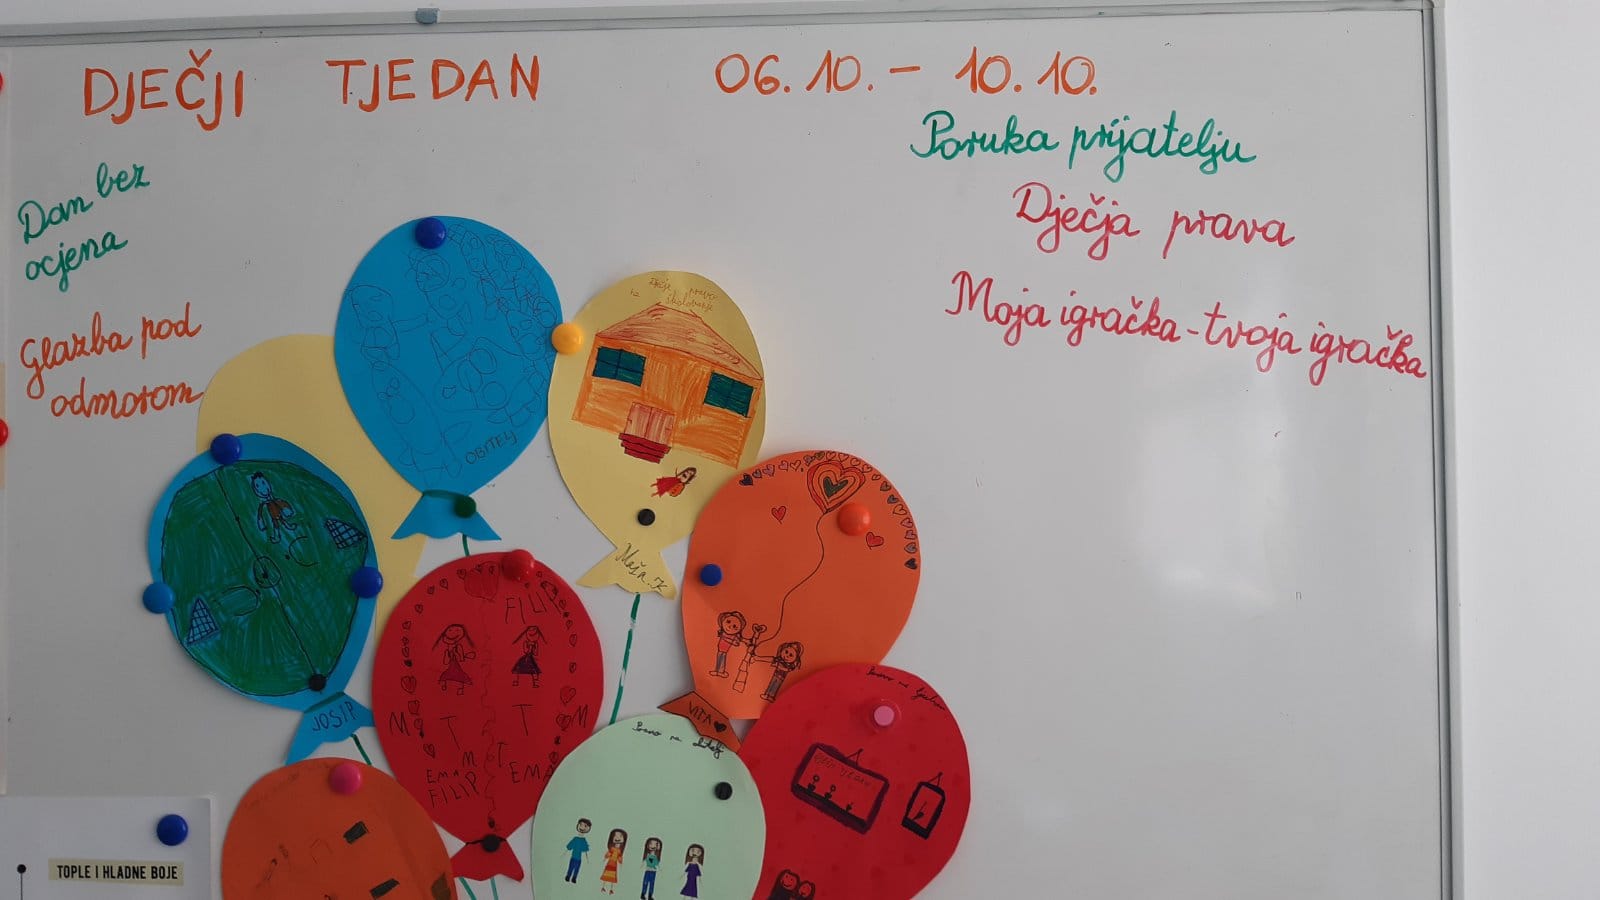 DJEČJI TJEDAN 06.10. - 10.10.
Poruka prijatelju
Dječja prava
Moja igračka - tvoja igračka
Dan bez
ocjena
Glazba pod
odmorom
OBITELJ
Dječje pravo
na školovanje
JOSIP
FILIP
M T T M
EMA M T EMA
FILIP
VITA
Pravo na
TOPLE I HLADNE BOJE